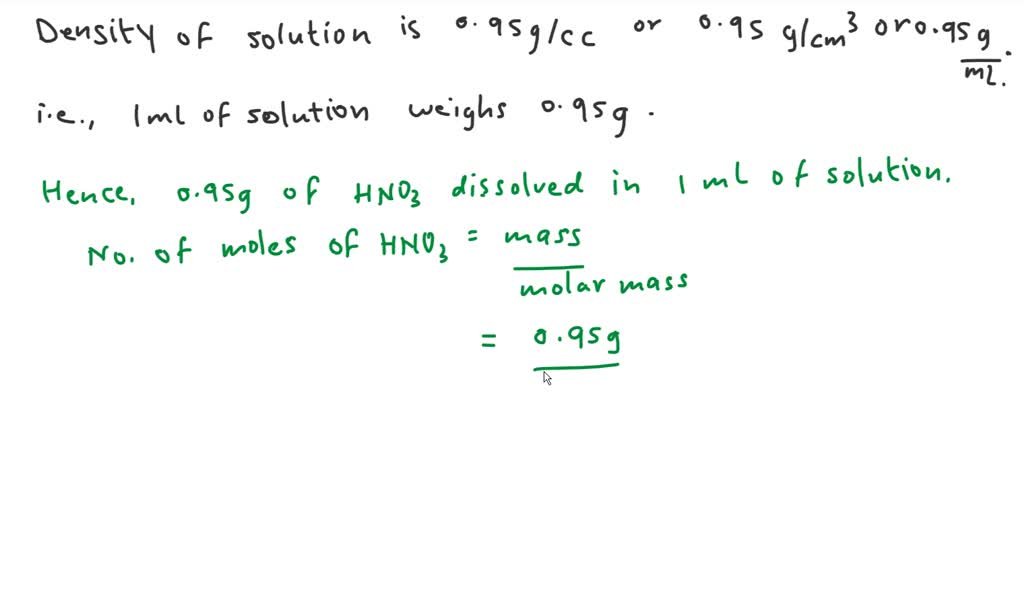 Density of solution is 0.95g/cc or 0.95 g/cm³ or 0.95g/mL.
i.e., 1ml of solution weighs 0.95g.
Hence, 0.95g of HNO₃ dissolved in 1 mL of solution.
No. of moles of HNO₃ = mass
molar mass
= 0.95g